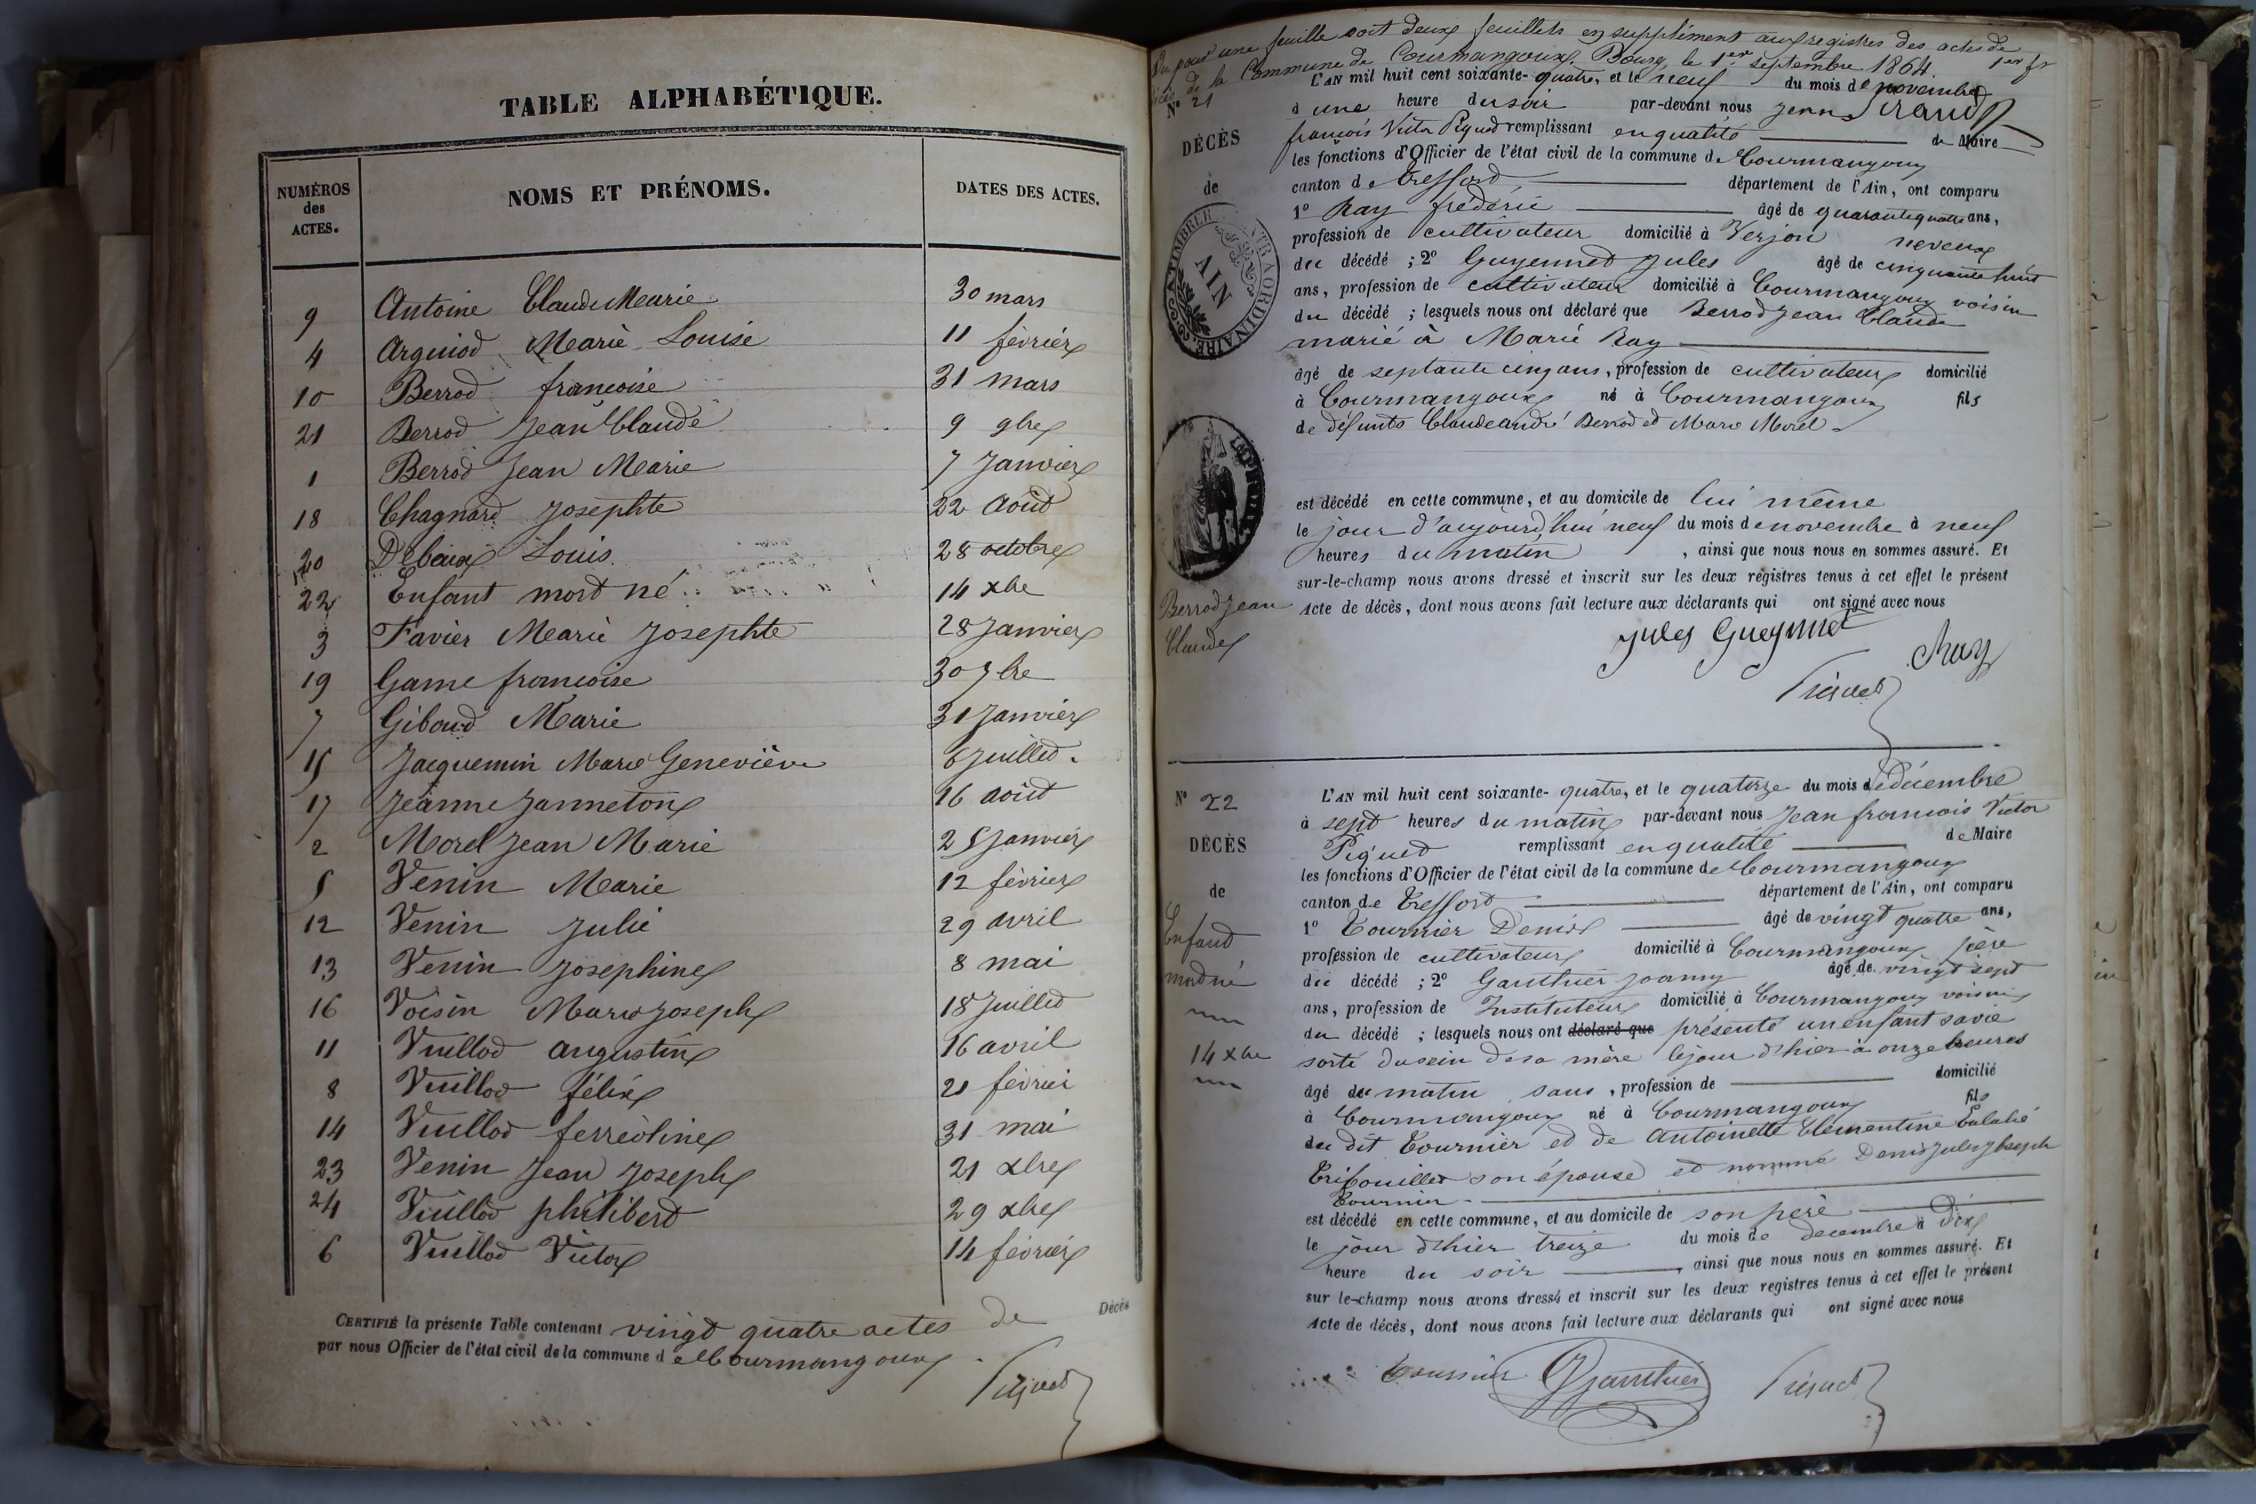 TABLE ALPHABÉTIQUE.
NUMÉROS des ACTES.
NOMS ET PRÉNOMS.
DATES DES ACTES.
9 Antoine Claude Marie 30 mars
4 Arguiod Marie Louise 11 février
10 Berrod francoise 31 mars
21 Berrod Jean Claude 9 9bre
1 Berrod Jean Marie 7 Janvier
18 Chagnard Josephte 22 Août
20 Debaux Louis 28 octobre
22 Enfant mort né 14 xbre
3 Favier Marie Josephte 28 Janvier
19 Game francoise 30 7bre
7 Giboud Marie 31 Janvier
15 Jacquemin Marie Geneviève 6 Juillet.
17 Jeanne Janneton 16 août
2 Morel Jean Marie 25 Janvier
5 Venin Marie 12 février
12 Venin Julie 29 avril
13 Venin Josephine 8 mai
16 Voisin Marie Joseph 18 Juillet
11 Vuillod augustin 16 avril
8 Vuillod félix 21 février
14 Vuillod ferréoline 31 mai
23 Venin Jean Joseph 21 xbre
24 Vuillod philibert 29 xbre
6 Vuillod Victor 14 février
CERTIFIÉ la présente Table contenant vingt quatre actes de Décès
par nous Officier de l'état civil de la commune de Courmangoux.
Piquet
Vu pour une feuille soit deux feuillets en supplément aux registres des actes de
décès de la Commune de Courmangoux. Bourg, le 1er septembre 1864.
N° 21
DÉCÈS
de
L'AN mil huit cent soixante-quatre, et le neuf du mois de novembre
à une heure du soir par-devant nous Jean
françois Victor Piquet remplissant en qualité de Maire
les fonctions d'Officier de l'état civil de la commune de Courmangoux
canton de Treffort département de l'Ain, ont comparu
1° Ray frédéric âgé de quarante quatre ans,
profession de cultivateur domicilié à Verjon neveux
du décédé ; 2° Guyennet Jules âgé de cinquante huit
ans, profession de cultivateur domicilié à Courmangoux voisin
du décédé ; lesquels nous ont déclaré que Berrod Jean Claude
marié à Marie Ray
âgé de septante cinq ans, profession de cultivateur domicilié
à Courmangoux né à Courmangoux fils
de défunts Claude andré Berrod et Marie Morel
est décédé en cette commune, et au domicile de lui même
le jour d'aujourd'hui neuf du mois de novembre à neuf
heures du matin, ainsi que nous nous en sommes assuré. Et
sur-le-champ nous avons dressé et inscrit sur les deux registres tenus à cet effet le présent
Acte de décès, dont nous avons fait lecture aux déclarants qui ont signé avec nous
Berrod Jean
Claude
Jules Gueynnet
Ray
Piquet
TIMBRE EXTRAORDINAIRE
AIN
N° 22
DÉCÈS
de
Enfant
mort né
14 xbre
L'AN mil huit cent soixante-quatre, et le quatorze du mois de décembre
à sept heures du matin par-devant nous Jean francois Victor
Piquet remplissant en qualité de Maire
les fonctions d'Officier de l'état civil de la commune de Courmangoux
canton de Treffort département de l'Ain, ont comparu
1° Tournier Denis âgé de vingt quatre ans,
profession de cultivateur domicilié à Courmangoux père
du décédé ; 2° Gauthier Joanny âgé de vingt sept
ans, profession de Instituteur domicilié à Courmangoux voisin
du décédé ; lesquels nous ont déclaré que présenté un enfant sans vie
sorti du sein de sa mère le jour d'hier à onze heures
âgé du matin sans, profession de domicilié
à Courmangoux né à Courmangoux fils
du dit Tournier et de Antoinette Clémentine Eulalie
Tribouillet son épouse et nommé Denis Jules Joseph
Tournier
est décédé en cette commune, et au domicile de son père
le jour d'hier treize du mois de decembre à dix
heure du soir, ainsi que nous nous en sommes assuré. Et
sur le-champ nous avons dressé et inscrit sur les deux registres tenus à cet effet le présent
Acte de décès, dont nous avons fait lecture aux déclarants qui ont signé avec nous
Tournier Gauthier Piquet